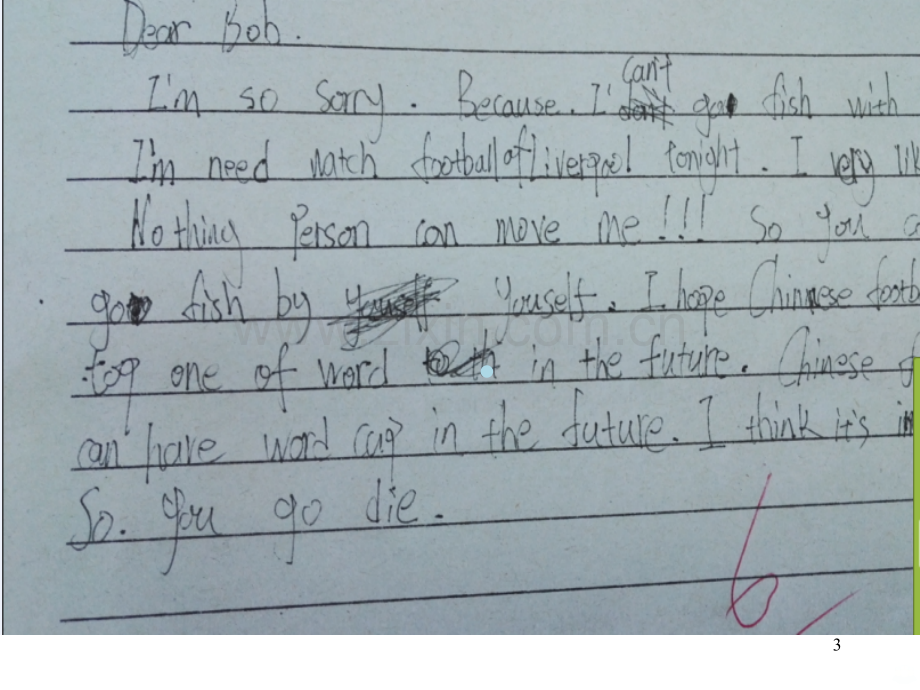 Dear Bob.
Can't
I'm so sorry. Because. I' go fish with
I'm need watch football of Liverpool tonight. I very lik
Nothing Person can move me!!! So you c
go fish by youself. I hope Chinese footb
top one of word in the future. Chinese f
can have word cup in the future. I think it's im
So. you go die.
www.zixin.com.cn
6
3